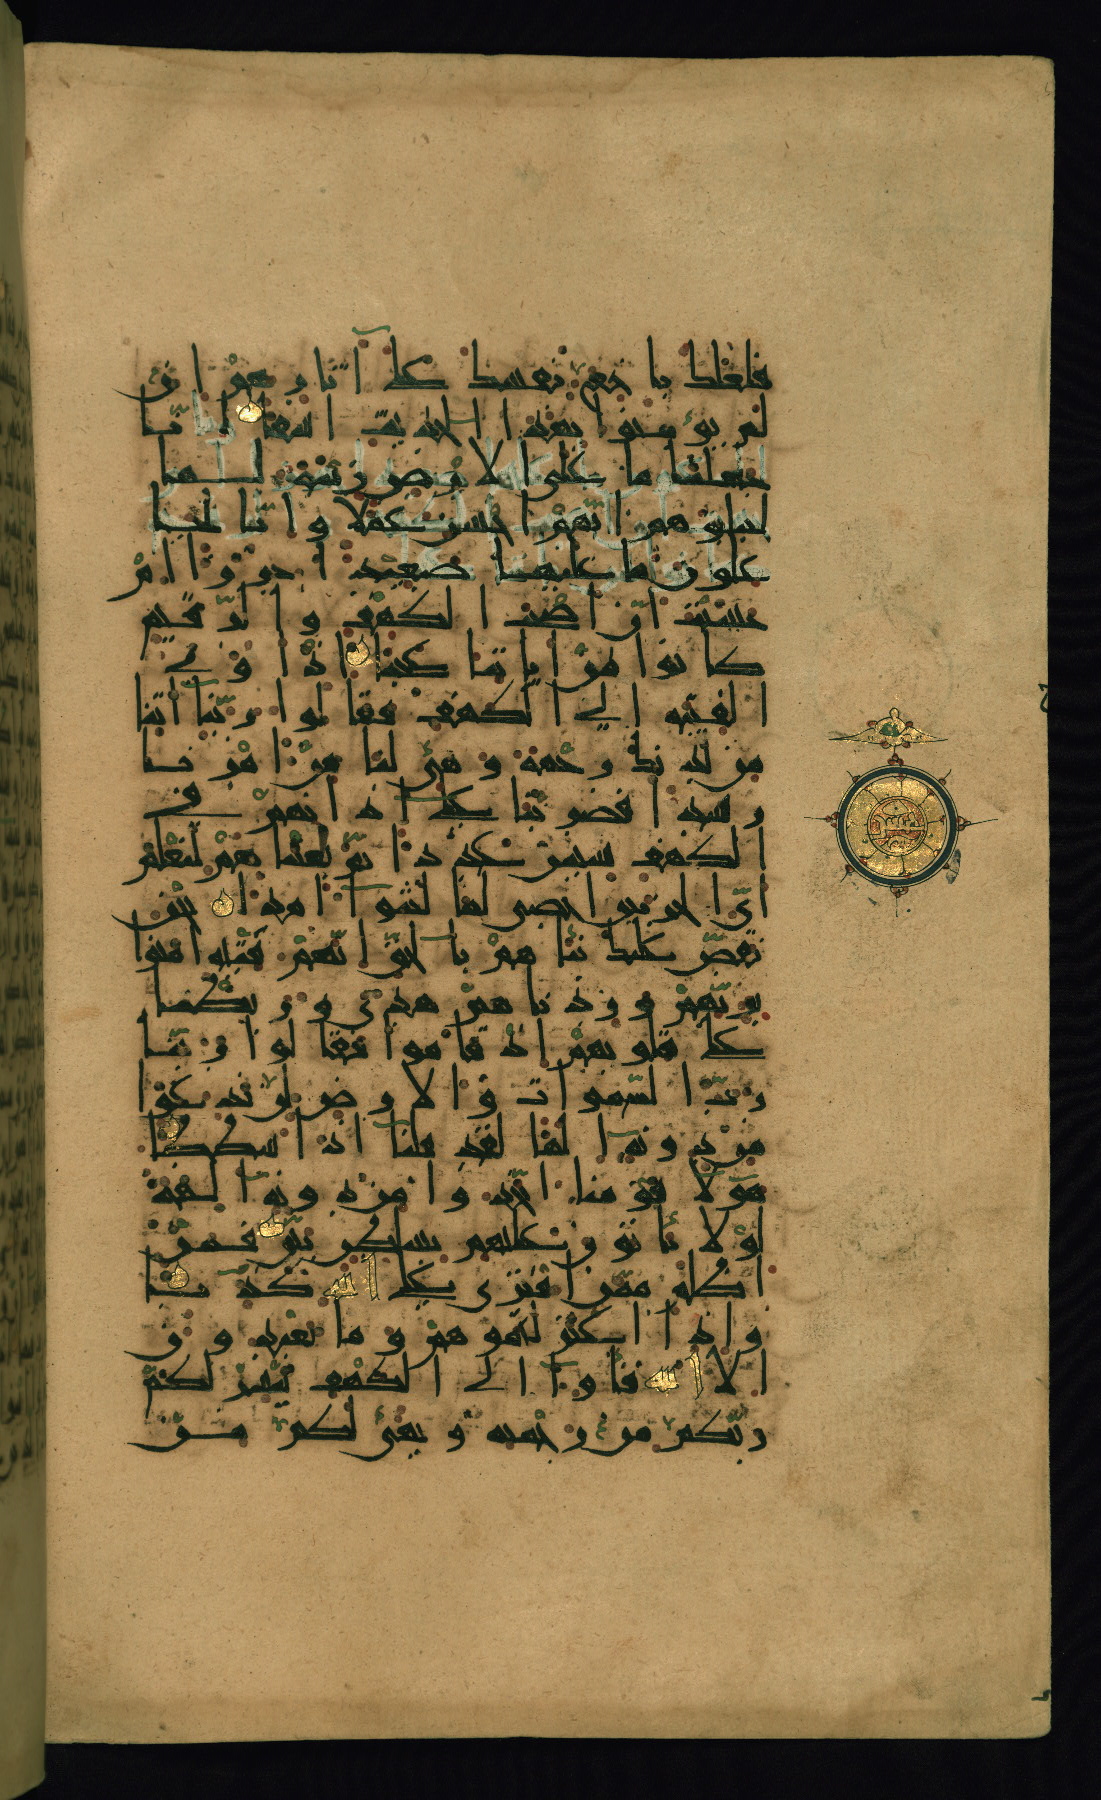 فلعلك باخع نفسك على آثارهم ان
لم يؤمنوا بهذا الحديث اسفا انا
جعلنا ما على الارض زينة لها
لنبلوهم ايهم احسن عملا وانا لجا
علون ما عليها صعيدا جرزا ام
حسبت ان اصحب الكهف والرقيم
كانوا من اياتنا عجبا اذ اوى
الفتية الى الكهف فقالوا ربنا آتنا
من لدنك رحمة وهيئ لنا من امرنا
رشدا فضربنا على آذانهم في
الكهف سنين عددا ثم بعثناهم لنعلم
اي الحزبين احصى لما لبثوا امدا نحن
نقص عليك نبأهم بالحق انهم فتية امنوا
بربهم وزدناهم هدى وربطنا
على قلوبهم اذ قاموا فقالوا ربنا
رب السموات والارض لن ندعوا
من دونه الها لقد قلنا اذا شططا
هؤلا قومنا اتخذوا من دونه الهة
لولا يأتون عليهم بسلطن بين فمن
اظلم ممن افترى على الله كذبا
واذ اعتزلتموهم وما يعبدون
الا الله فأوا الى الكهف ينشر لكم
ربكم من رحمته ويهيئ لكم من